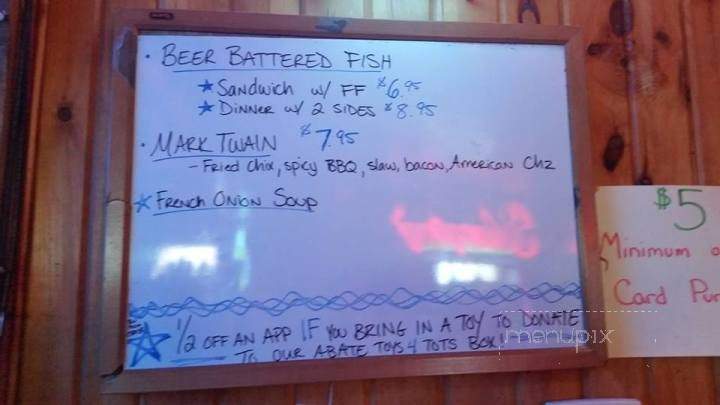 · BEER BATTERED FISH
★ Sandwich w/ FF $6.95
★ DINNER w/ 2 SIDES $8.95
· MARK TWAIN $7.95
- FRIED Chix, spicy BBQ, slaw, bacon, American Chz
★ FRENCH ONION SOUP
★ 1/2 OFF AN APP IF YOU BRING IN A TOY TO DONATE
TO OUR ABATE TOYS 4 TOTS BOX!
$5
Minimum
Card
menupix